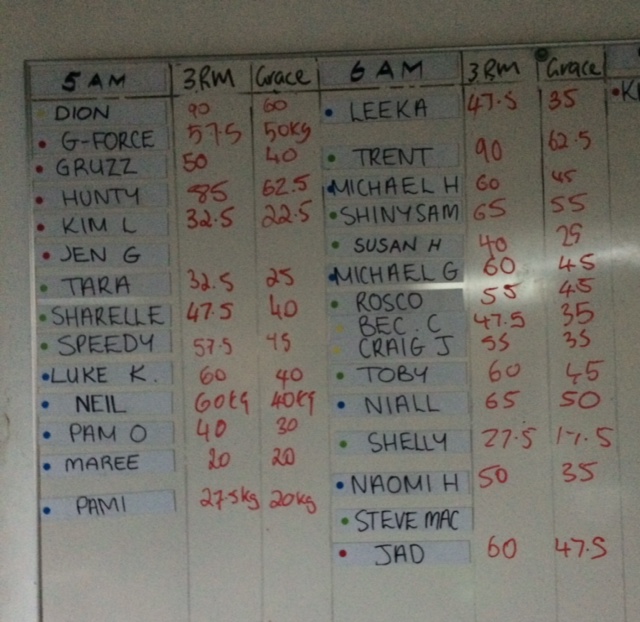 5 AM 3RM Grace
DION 90 60
G-FORCE 57.5 50kg
GRUZZ 50 40
HUNTY 85 62.5
KIM L 32.5 22.5
JEN G
TARA 32.5 25
SHARELLE 47.5 40
SPEEDY 57.5 45
LUKE K. 60 40
NEIL 60kg 40kg
PAM O 40 30
MAREE 20 20
PAMI 27.5kg 20kg
6 AM 3RM Grace
LEEKA 47.5 35
TRENT 90 62.5
MICHAEL H 60 45
SHINYSAM 65 55
SUSAN H 40 25
MICHAEL G 60 45
ROSCO 55 45
BEC. C 47.5 35
CRAIG J 55 35
TOBY 60 45
NIALL 65 50
SHELLY 27.5 17.5
NAOMI H 50 35
STEVE MAC
JAD 60 47.5